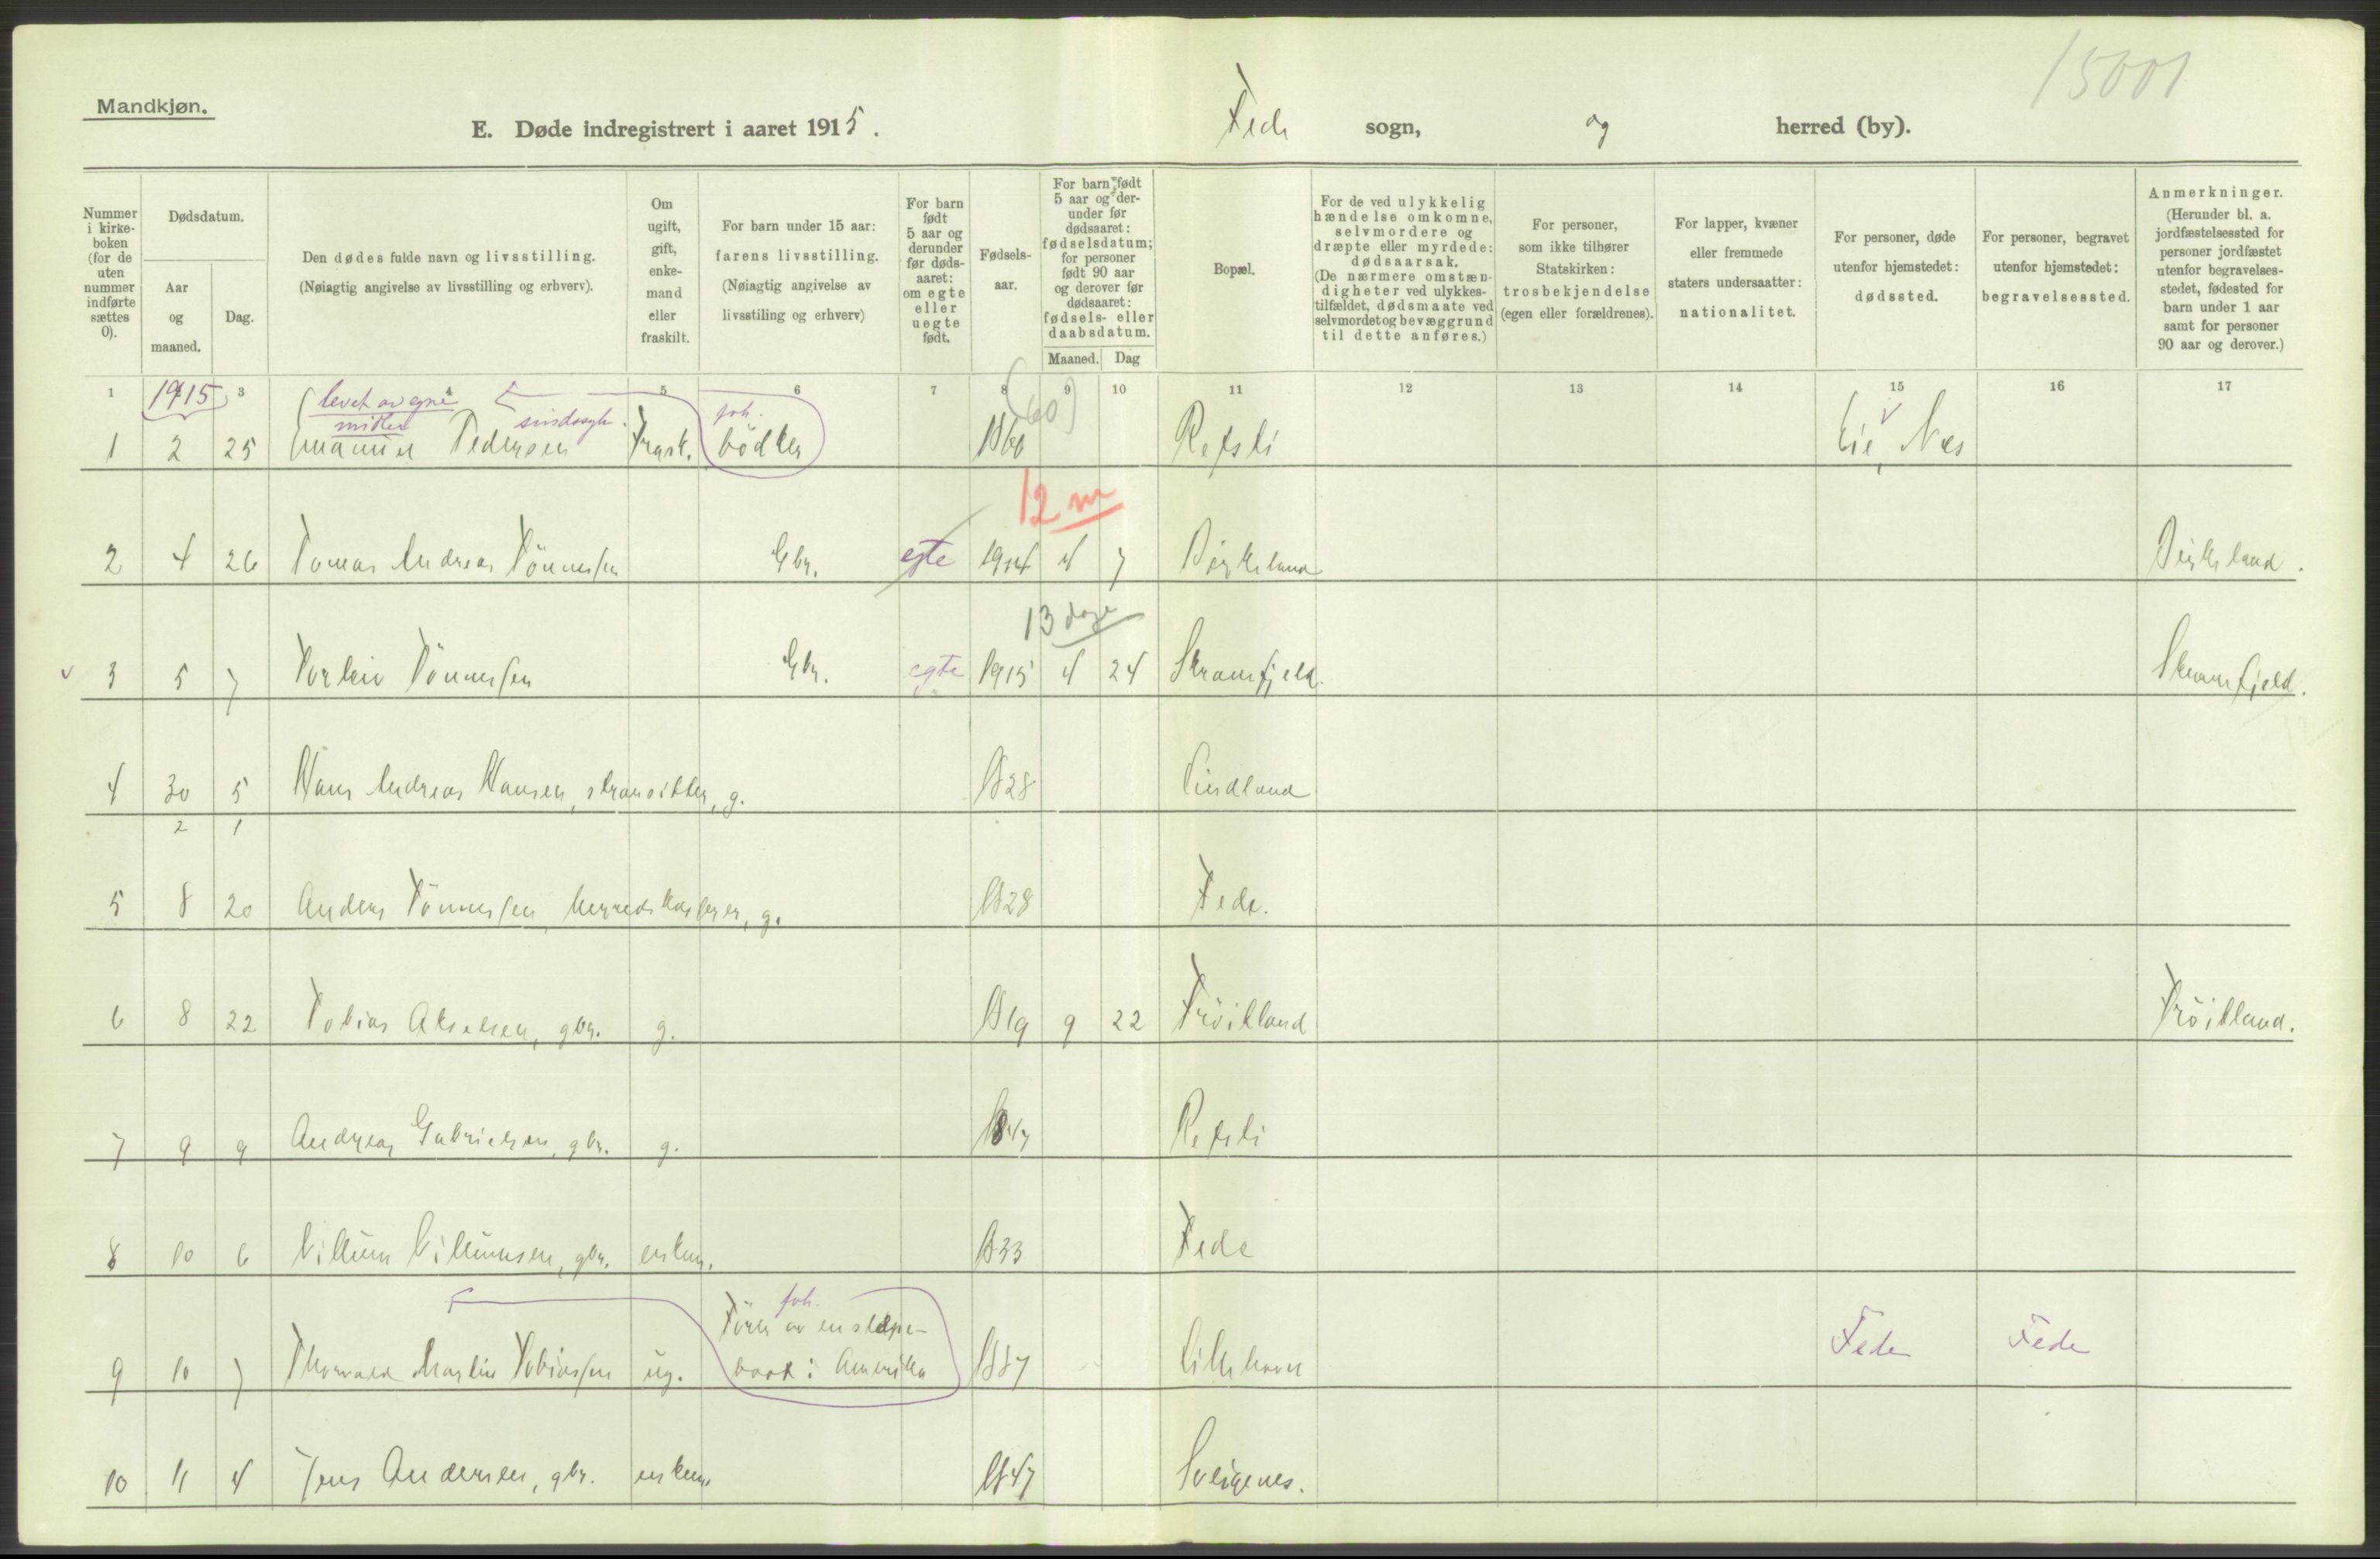 15001
Mandkjøn.
E. Døde indregistrert i aaret 1915.
Fede sogn, og herred (by).
Nummer i kirkeboken (for de uten nummer indførte sættes 0).
Dødsdatum.
Aar og maaned.
Dag.
Den dødes fulde navn og livsstilling.
(Nøiagtig angivelse av livsstilling og erhverv).
Om ugift, gift, enkemand eller fraskilt.
For barn under 15 aar:
farens livsstilling.
(Nøiagtig angivelse av livsstiling og erhverv)
For barn født 5 aar og derunder før dødsaaret: om egte eller uegte født.
Fødselsaar.
For barn født 5 aar og derunder før dødsaaret: fødselsdatum; for personer født 90 aar og derover før dødsaaret: fødsels- eller daabsdatum.
Maaned. Dag
Bopæl.
For de ved ulykkelig hændelse omkomne, selvmordere og dræpte eller myrdede: dødsaarsak.
(De nærmere omstændigheter ved ulykkestilfældet, dødsmaate ved selvmordet og bevæggrund til dette anføres.)
For personer, som ikke tilhører Statskirken: trosbekjendelse (egen eller forældrenes).
For lapper, kvæner eller fremmede staters undersaatter: nationalitet.
For personer, døde utenfor hjemstedet: dødssted.
For personer, begravet utenfor hjemstedet: begravelsessted.
Anmerkninger.
(Herunder bl. a. jordfæstelsessted for personer jordfæstet utenfor begravelsesstedet, fødested for barn under 1 aar samt for personer 90 aar og derover.)
1 3 4 5 6 7 8 9 10 11 12 13 14 15 16 17
1915
levet av egne midler sindssyk. foh. (60)
1 2 25 Emanuel Pedersen Frask. bödker 1860 Refsti Lie, Næs
12 m
2 4 26 Tomas Andreas Tönnessen Gbr. egte 1914 4 7 Birkeland Birkeland.
13 dage
3 5 7 Torleiv Tönnessen Gbr. egte 1915 4 24 Skramfjeld. Skramfjeld.
4 30 5 Hans Andreas Hansen, stransitter, g. 1828 Lindland
2 1
5 8 20 Anders Tönnessen herredskasserer, g. 1828 Fede.
6 8 22 Tobias Akselsen, gbr. g. 1819 9 22 Fröitland Fröitland.
7 9 9 Andreas Gabrielsen, gbr. g. 1847 Refsti
8 10 6 Villum Villumsen, gbr. enkem. 1833 Fede
foh.
Förer av en slæpe-
9 10 7 Thorvald Martin Tobiassen ug. baat i Amerika 1887 Fede Fede
10 11 4 Jens Andersen, gbr. enkem. 1847 Sveigenes.